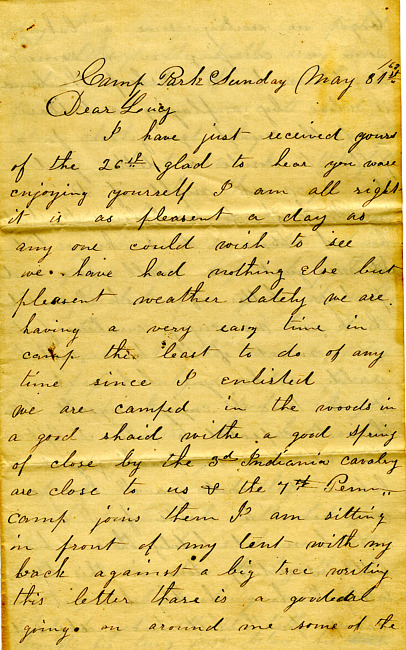 Camp Park Sunday May 31st /63
Dear Lucy
I have just received yours
of the 26th glad to hear you ware
enjoying yourself I am all right
it is as pleasent a day as
any one could wish to see
we have had nothing else but
pleasent weather lately we are
having a very easy time in
camp the least to do of any
time since I enlisted
we are camped in the woods in
a good shaid withe a good spring
of close by the 3d Indiania cavalry
are close to us & the 7th Penn
camp joins them I am sitting
in front of my tent with my
back against a big tree writing
this letter thare is a gooddeal
going on around me some of the